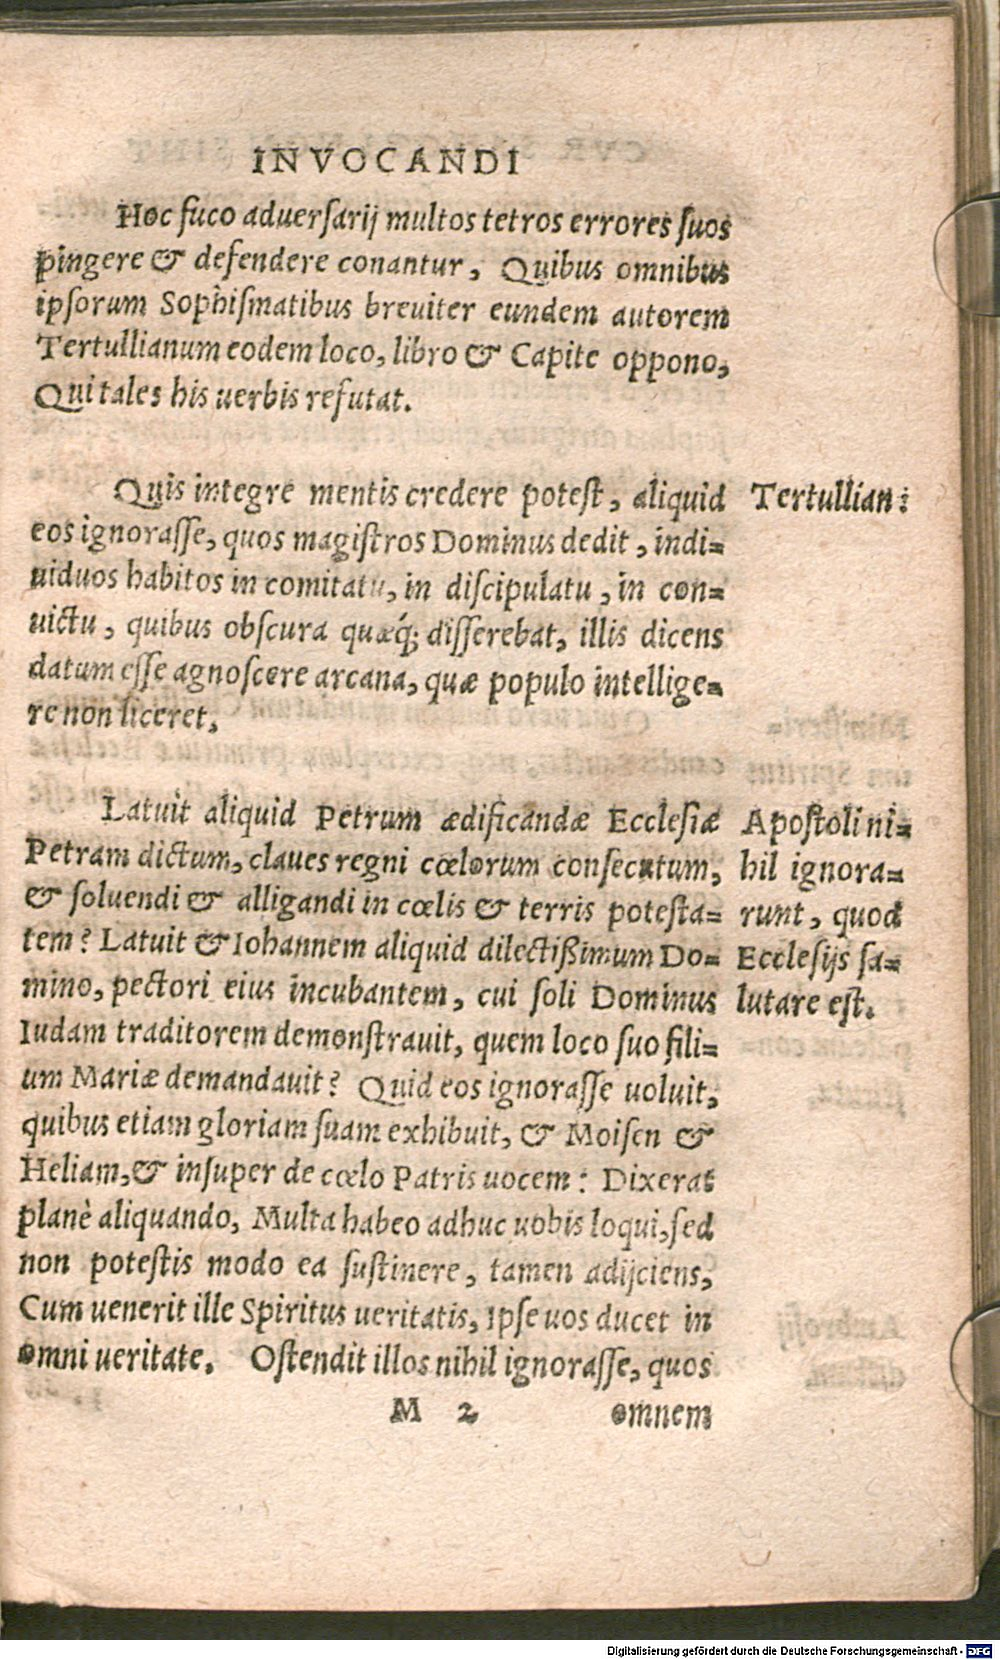 INVOCANDI
Hoc fuco aduersarij multos tetros errores suos
pingere & defendere conantur, Quibus omnibus
ipsorum Sophismatibus breuiter eundem autorem
Tertullianum eodem loco, libro & Capite oppono,
Qui tales his uerbis refutat.
Quis integre mentis credere potest, aliquid
eos ignorasse, quos magistros Dominus dedit, indi=
uiduos habitos in comitatu, in discipulatu, in con=
uictu, quibus obscura quæq́; disserebat, illis dicens
datum esse agnoscere arcana, quæ populo intellige=
re non liceret.
Tertullian:
Latuit aliquid Petrum ædificandæ Ecclesiæ
Petram dictum, claues regni cœlorum consecutum,
& soluendi & alligandi in cœlis & terris potesta=
tem? Latuit & Iohannem aliquid dilectißimum Do=
mino, pectori eius incubantem, cui soli Dominus
Iudam traditorem demonstrauit, quem loco suo fili=
um Mariæ demandauit? Quid eos ignorasse uoluit,
quibus etiam gloriam suam exhibuit, & Moisen &
Heliam, & insuper de cœlo Patris uocem: Dixerat
planè aliquando, Multa habeo adhuc uobis loqui, sed
non potestis modo ea sustinere, tamen adijciens,
Cum uenerit ille Spiritus ueritatis, ipse uos ducet in
omni ueritate. Ostendit illos nihil ignorasse, quos
Apostoli ni=
hil ignora=
runt, quod
Ecclesijs sa=
lutare est.
M 2 omnem
Digitalisierung gefördert durch die Deutsche Forschungsgemeinschaft - DFG